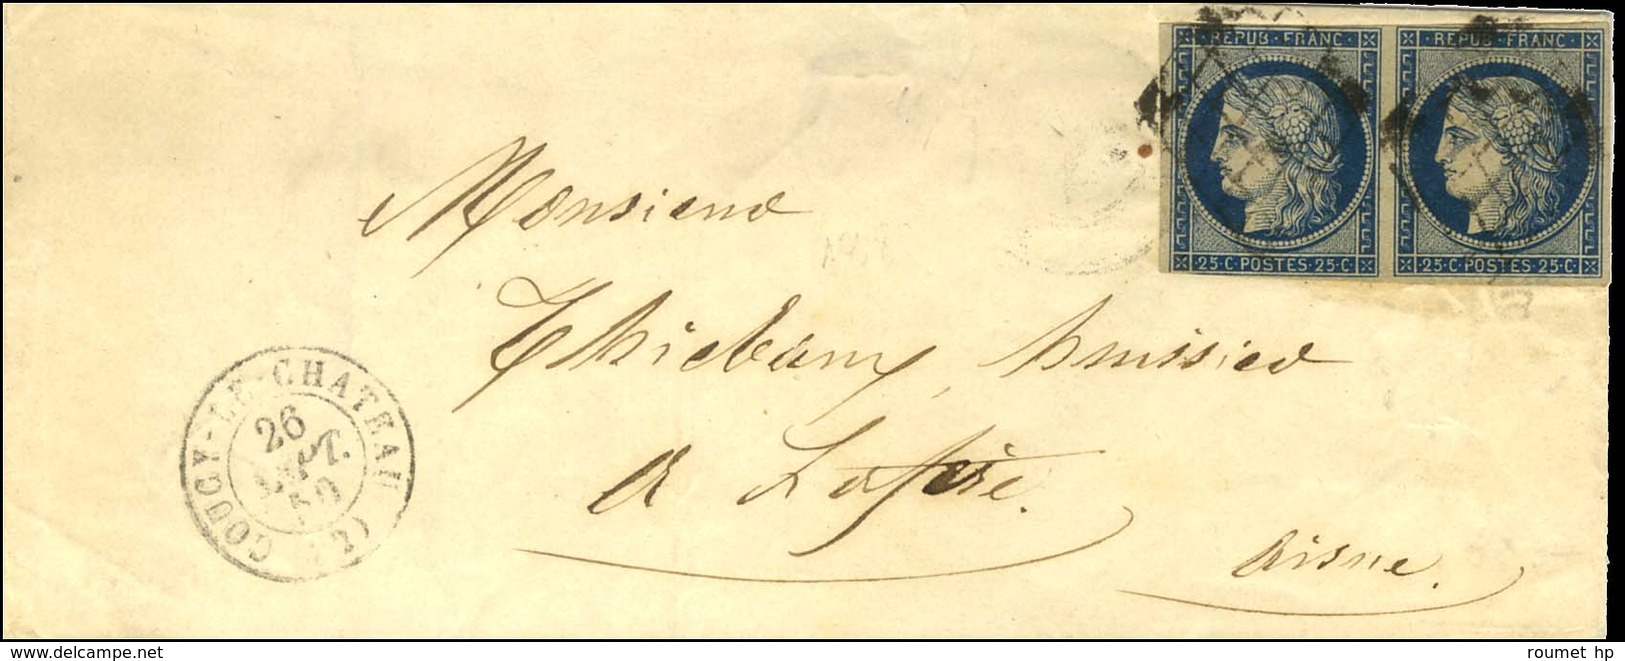 REPUB·FRANC· REPUB·FRANC·
25·C·POSTES·25·C 25·C·POSTES·25·C
Monsieur
Thiebaux, huissier
a Lafère.
Aisne.
COUCY-LE-CHATEAU (2)
26
SEPT.
50
www.delcampe.net
roumet hp